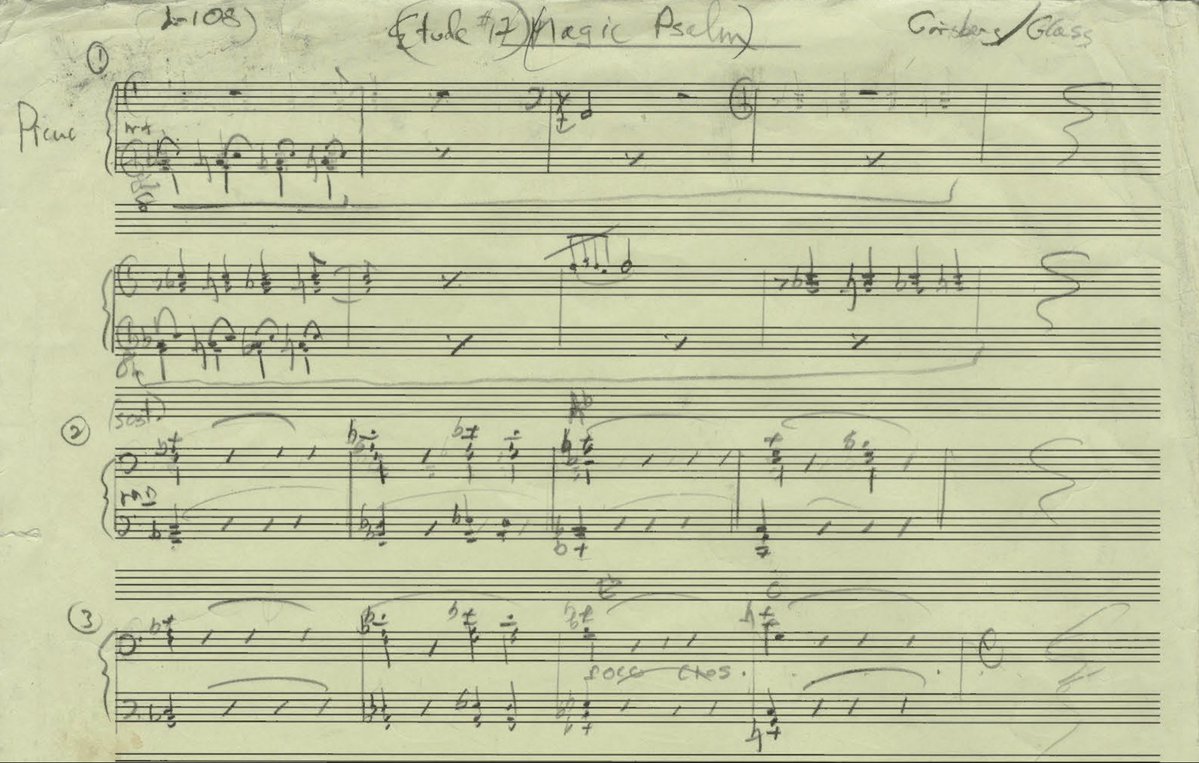 (♩=108) (Etude #17) (Magic Psalm) Ginsberg/Glass
①
Piano
(sost.)
②
Ab
③
C
poco cres.